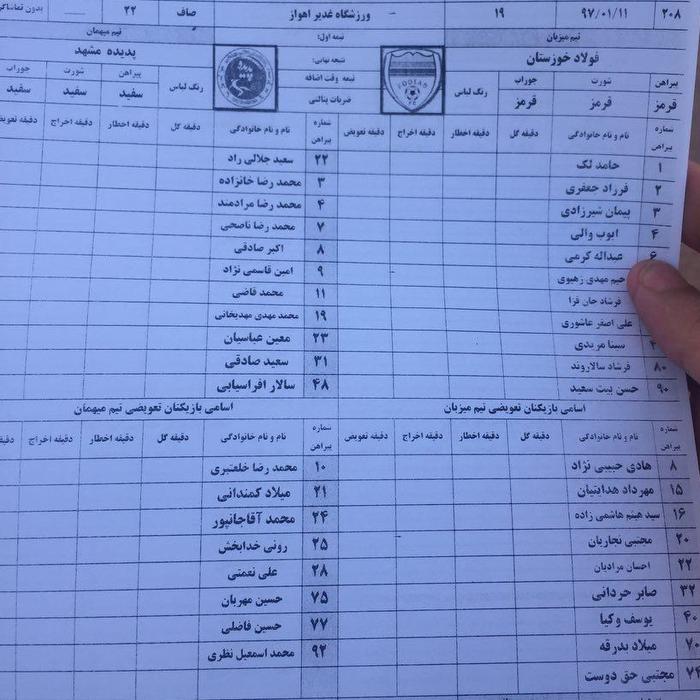 ۲۰۸ ۹۷/۰۱/۱۱ ۱۹ ورزشگاه غدیر اهواز صاف ۲۲ بدون تماشاگر
تیم میزبان نیمه اول: تیم میهمان
فولاد خوزستان نتیجه نهایی: پدیده مشهد
پیراهن شورت جوراب رنگ لباس نیمه وقت اضافه رنگ لباس پیراهن شورت جوراب
قرمز قرمز قرمز ضربات پنالتی سفید سفید سفید
FOOLAD
FC
شماره پیراهن نام و نام خانوادگی دقیقه گل دقیقه اخطار دقیقه اخراج دقیقه تعویض شماره پیراهن نام و نام خانوادگی دقیقه گل دقیقه اخطار دقیقه اخراج دقیقه تعویض
۱ حامد لک ۲۲ سعید جلالی راد
۲ فرزاد جعفری ۳ محمد رضا خانزاده
۳ پیمان شیرزادی ۴ محمد رضا مرادمند
۴ ایوب والی ۷ محمد رضا ناصحی
۶ عبداله کرمی ۸ اکبر صادقی
رحیم مهدی زهیوی ۹ امین قاسمی نژاد
فرشاد جان فزا ۱۱ محمد قاضی
علی اصغر عاشوری ۱۹ محمد مهدی مهدیخانی
سینا مریدی ۲۳ معین عباسیان
۸۰ فرشاد سالاروند ۳۱ سعید صادقی
۹۰ حسن بیت سعید ۴۸ سالار افراسیابی
اسامی بازیکنان تعویضی تیم میزبان اسامی بازیکنان تعویضی تیم میهمان
شماره پیراهن نام و نام خانوادگی دقیقه گل دقیقه اخطار دقیقه اخراج دقیقه تعویض شماره پیراهن نام و نام خانوادگی دقیقه گل دقیقه اخطار دقیقه اخراج
۸ هادی حبیبی نژاد ۱۰ محمد رضا خلعتبری
۱۵ مهرداد هدایتیان ۲۱ میلاد کمندانی
۱۶ سید هیثم هاشمی زاده ۲۴ محمد آقاجانپور
۲۰ مجتبی نجاریان ۲۵ رونی خدابخش
۲۲ احسان مرادیان ۲۸ علی نعمتی
۳۲ صابر حردانی ۷۵ حسین مهربان
۴۰ یوسف وکیا ۷۷ حسین فاضلی
۷۰ میلاد بدرقه ۹۲ محمد اسمعیل نظری
مجتبی حق دوست